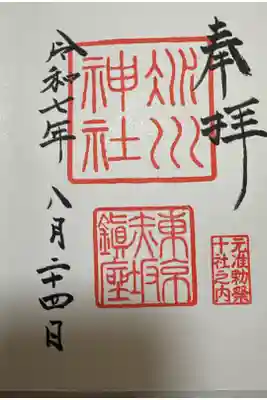 奉拝
氷川
神社
元准勅祭
十社之内
東京
赤坂
鎮座
令和七年 八月二十四日